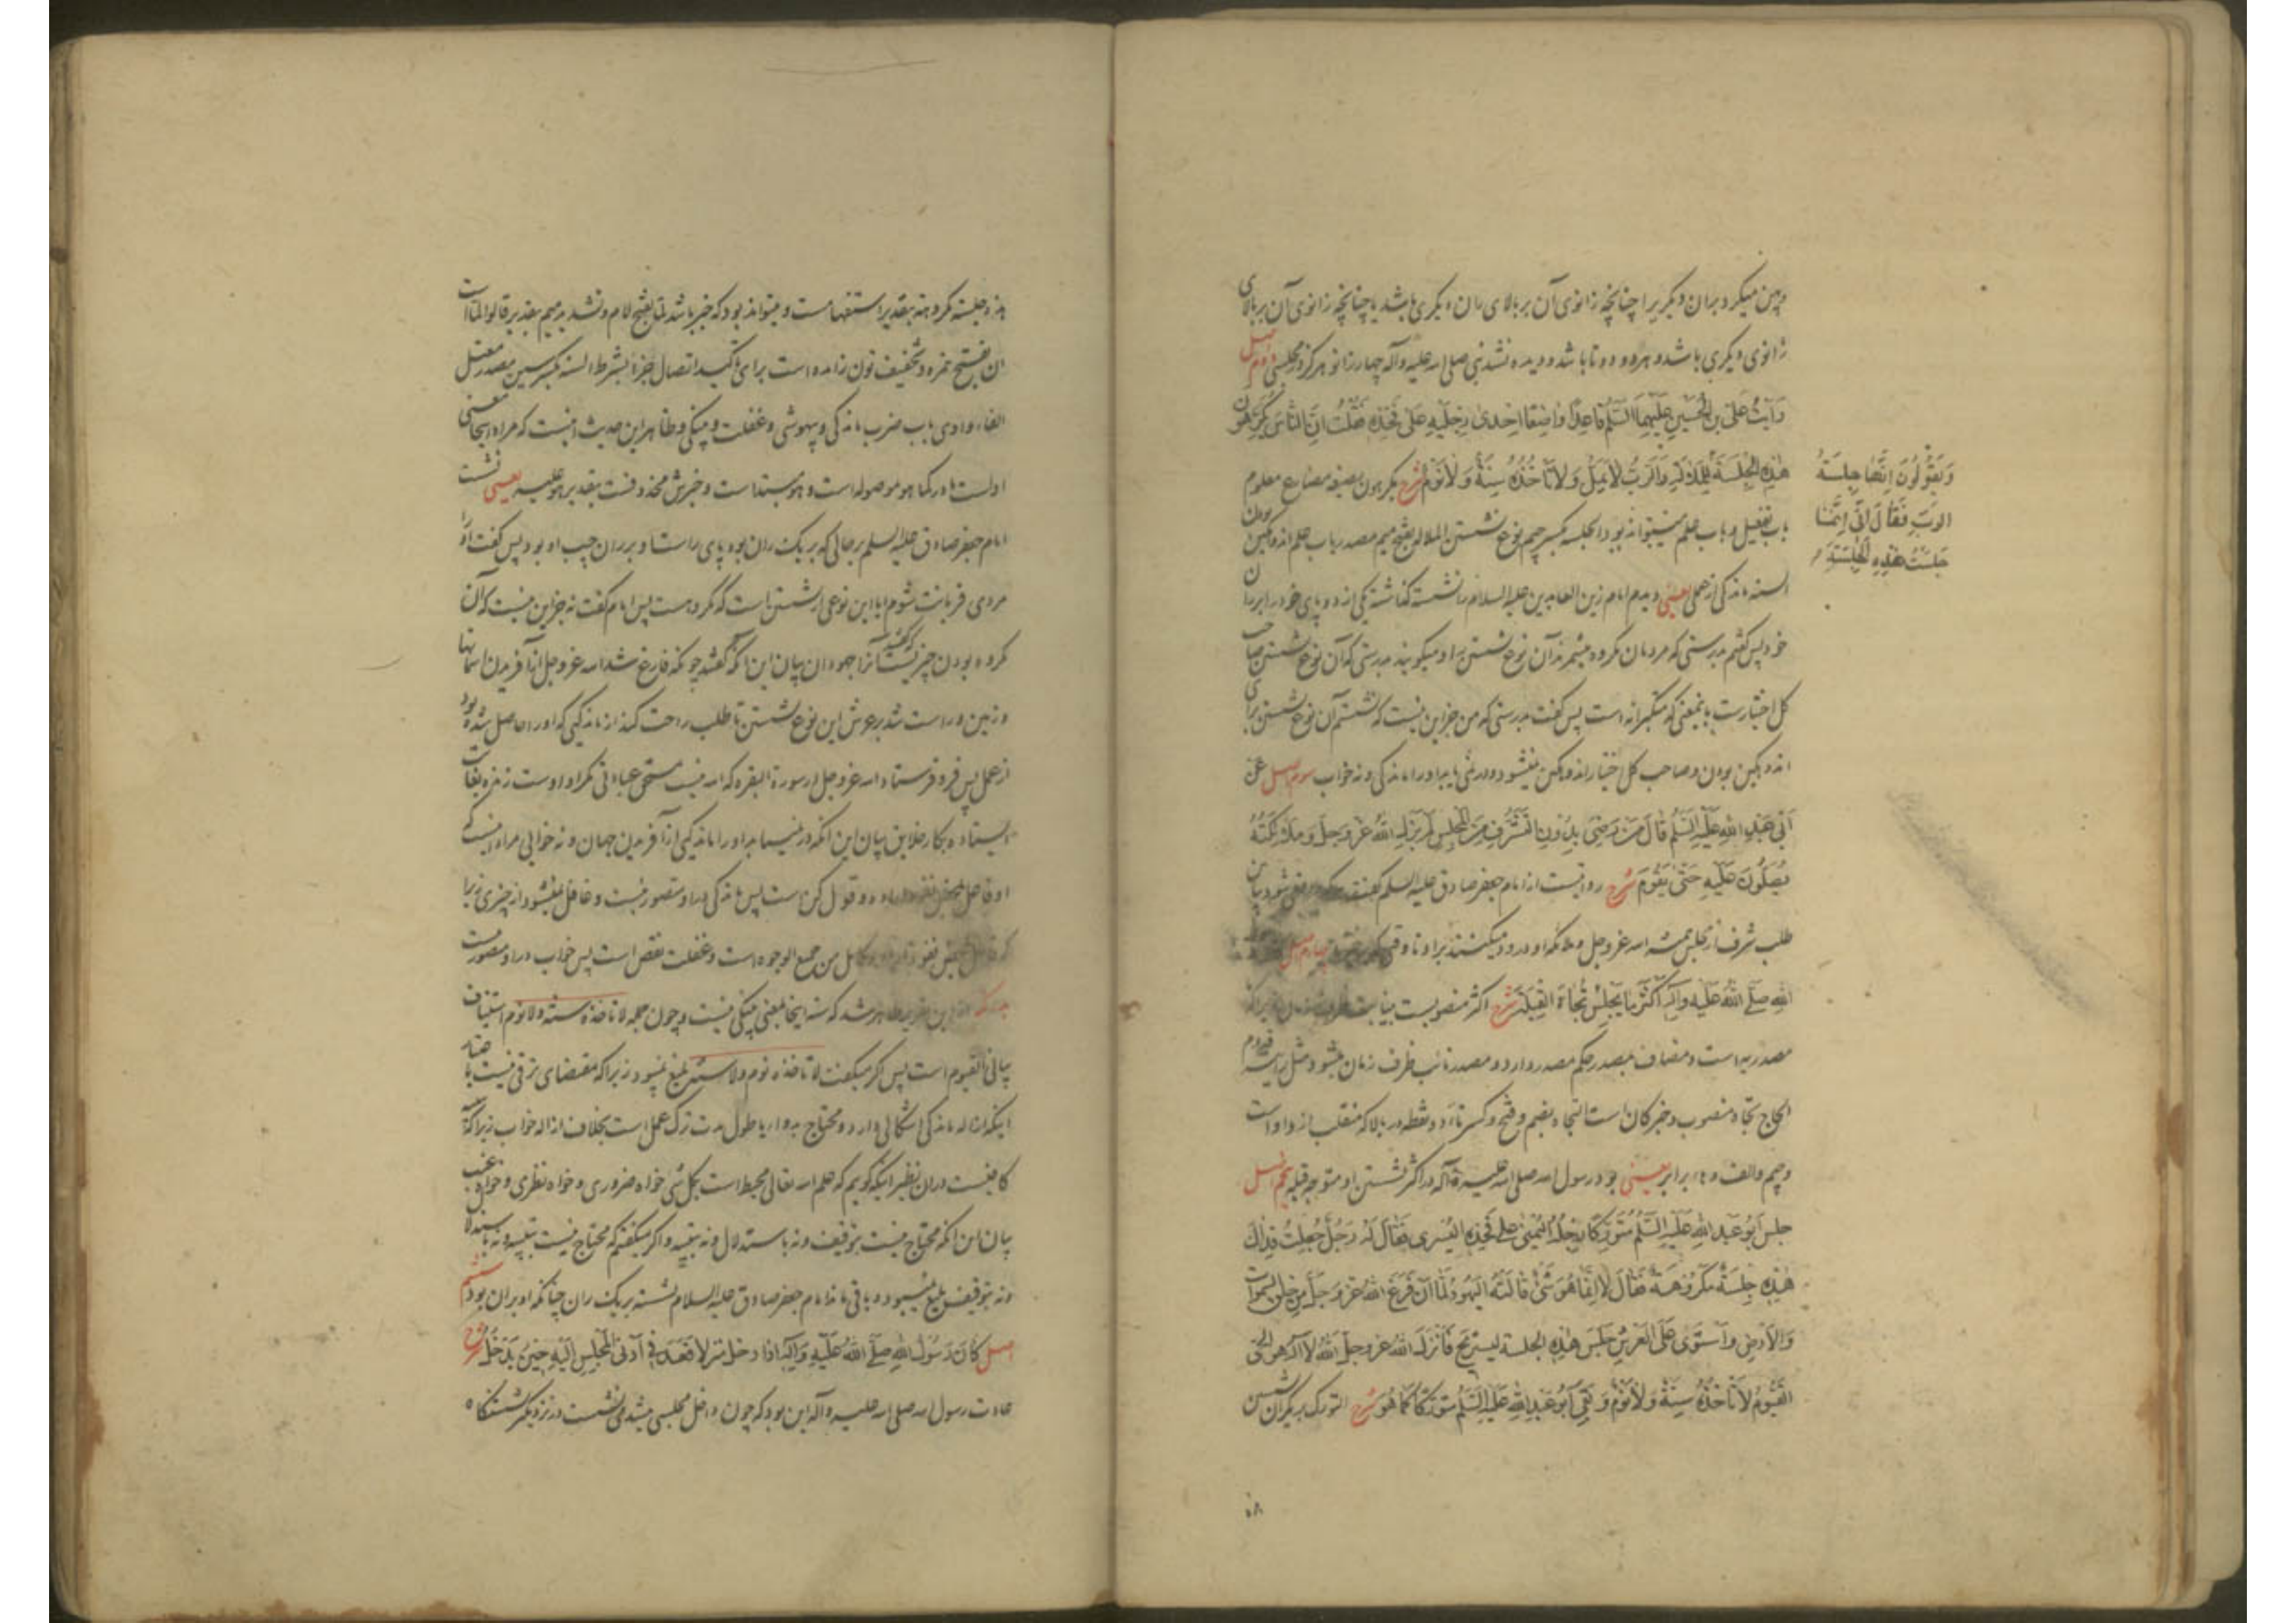 و پهن میکرد بران دیگریرا چنانچه زانوی آن بر بالای ران دیگری باشد یا چنانچه زانوی آن بر بالای
زانوی دیگری باشد و هر دو دوتا باشد و دیده نشد نبی صلی الله علیه وآله چهار زانو هرگز در مجلسی دوم اصل
رَأَیتُ عَلیَّ بنَ الحُسَینِ عَلَیهِمَا السَّلَمُ قَاعِدًا وَاضِعًا اِحدٰی رِجلَیهِ عَلیٰ فَخِذِهِ فَقُلتُ اِنَّ النَّاسَ یَکرَهُونَ
هٰذِهِ الجِلسَةَ لِلمَلَالَةِ وَالرَّبُّ لَا یَمَلُّ وَلَا تَأخُذُهُ سِنَةٌ وَلَا نَومٌ شرح یکرهون بصیغه مضارع معلوم
وَیَقُولُونَ اِنَّهَا جِلسَةُ
الرَّبِّ فَقَالَ اِنّی اِنَّمَا
جَلَستُ هٰذِهِ الجِلسَةَ
باب تفعیل و باب علم میتواند بود الجلسه بکسر جیم نوع نشستن الملاله بفتح میم مصدر باب علم اندوهگین بودن
السنه ماندگی از عمل یعنی دیدم امام زین العابدین علیه السلام را نشسته گذاشته یکی از دو پای خود را بر ران
خود پس گفتم بدرستی که مردمان مکروه میشمرند آن نوع نشستن را و میگویند بدرستی که آن نوع نشستن صاحب
کل اختیارست باینمعنی که متکبرانه است پس گفت بدرستی که من جز این نیست که نشستم آن نوع نشستن برای
اندوهگین بودن و صاحب کل اختیار اندوهگین نمیشود و در نمی یابد او را ماندگی و نه خواب سوم اصل عَن
اَبِی عَبدِ اللهِ عَلَیهِ السَّلَمُ قَالَ مَن رَضِیَ بِدُونِ التَّشَرُّفِ مِنَ المَجلِسِ لَم یَزَلِ اللهُ عَزَّ وَجَلَّ وَمَلَائِکَتُهُ
یُصَلُّونَ عَلَیهِ حَتّٰی یَقُومَ شرح روایتست از امام جعفر صادق علیه السلم گفت که راضی شود بپایین
طلب شرف از مجلس همیشه الله عز وجل و ملائکه او درود میکنند بر او تا وقتی که چهارم اصل
اللهِ صَلَّی اللهُ عَلَیهِ وَآلِهِ اَکثَرَ مَا یَجلِسُ تُجَاهَ القِبلَةِ شرح اکثر منصوبست زیرا که
مصدریه است و مضاف بمصدر حکم مصدر دارد و مصدر نائب ظرف زمان میشود مثل رایته قدوم
الحاج تجاه منصوب و خبر کان است التجاه بضم و فتح و کسر تاء دو نقطه در بالا که منقلب از واو است
و جیم و الف و هاء برابر یعنی بود رسول الله صلی الله علیه وآله در اکثر نشستن او متوجه قبله پنجم اصل
جَلَسَ اَبُو عَبدِ اللهِ عَلَیهِ السَّلَمُ مُتَوَرِّکًا رِجلُهُ الیُمنٰی عَلیٰ فَخِذِهِ الیُسرٰی فَقَالَ لَهُ رَجُلٌ جُعِلتُ فِدَاکَ
هٰذِهِ جِلسَةٌ مَکرُوهَةٌ فَقَالَ لَا اِنَّمَا هُوَ شَیءٌ قَالَتهُ الیَهُودُ لَمَّا اَن فَرَغَ اللهُ عَزَّ وَجَلَّ مِن خَلقِ السَّمٰوَاتِ
وَالاَرضِ وَاستَوٰی عَلَی العَرشِ جَلَسَ هٰذِهِ الجِلسَةَ لِیَستَرِیحَ فَاَنزَلَ اللهُ عَزَّ وَجَلَّ اللهُ لَا اِلٰهَ اِلَّا هُوَ الحَیُّ
القَیُّومُ لَا تَأخُذُهُ سِنَةٌ وَلَا نَومٌ وَبَقِیَ اَبُو عَبدِ اللهِ عَلَیهِ السَّلَمُ مُتَوَرِّکًا کَمَا هُوَ شرح التورک بر یک ران نشستن
۵۸
هذه جلسة مکروهة بتقدیر استفهامست و میتواند بود که خبر باشد لما بفتح لام و تشدید میم بتقدیر قالوا لما است
ان بفتح همزه و تخفیف نون زائده است برای تاکید اتصال جزا بشرط السنه بکسر سین مصدر معتل
الفاء واوی باب ضرب ماندگی و بیهوشی و غفلت و پینکی و ظاهر این حدیث اینست که مراد اینجا معنی
اولست ما در کما هو موصوله است و هو مبتداست و خبرش محذوفست بتقدیر هو علیه یعنی نشست
امام جعفر صادق علیه السلم بر حالی که بر یک ران بود پای راست او بر ران چپ او بود پس گفت او را
مردی قربانت شوم ایا این نوعی از نشستن است که مکروهست پس امام گفت نه جز این نیست که آن
مکروه بودن چیزیست که گفتند آنرا جهودان بیان این آنکه گفتند چونکه فارغ شد الله عز وجل از آفریدن آسمانها
و زمین و راست شد بر عرش این نوع نشستن تا طلب راحت کند از ماندگیی که او را حاصل شده بود
از عمل پس فرو فرستاد الله عز وجل در سورة البقره که الله نیست مستحق عبادتی مگر او اوست زنده بغایت
ایستاده بکار خلایق بیان این آنکه در نمییابد او را ماندگیی از آفریدن جهان و نه خوابی مراد اینست که
او فاعل بمحض نفوذ اراده و قول کن است پس ماندگی در او متصور نیست و غافل نمیشود از چیزی زیرا
که بمحض نفوذ کامل من جمیع الوجوه است و غفلت نقص است پس خواب در او متصور نیست
این تقریر ظاهر شد که سنه اینجا بمعنی پینکی نیست و چون جمله لا تاخذه سنة ولا نوم استیناف
بیانی القیوم است پس اگر میگفت لا تاخذه نوم ولا سنة بلیغ نمیبود زیرا که مقتضای ترقی نیست باعتبار
اینکه ازاله ماندگی اشکالی دارد و محتاج بدوا یا طول مدت ترک عمل است بخلاف ازاله خواب زیرا که
کافیست دران نظیر اینکه گوییم که علم الله تعالی محیط است بکل شی خواه ضروری و خواه نظری و خواه غیب
بیان این آنکه محتاج نیست بتوقیف و نه باستدلال و نه بتنبیه و اگر میگفتیم که محتاج نیست بتنبیه و نه باستدلال
و نه بتوقیف بلیغ نمیبود و باقی ماند امام جعفر صادق علیه السلام نشسته بر یک ران چنانکه او بران بود ششم
اصل کَانَ رَسُولُ اللهِ صَلَّی اللهُ عَلَیهِ وَآلِهِ اِذَا دَخَلَ مَنزِلًا قَعَدَ فِی اَدنَی المَجلِسِ اِلَیهِ حِینَ یَدخُلُ شرح
عادت رسول الله صلی الله علیه وآله این بود که چون داخل مجلسی میشد می نشست در نزدیکتر نشستنگاه